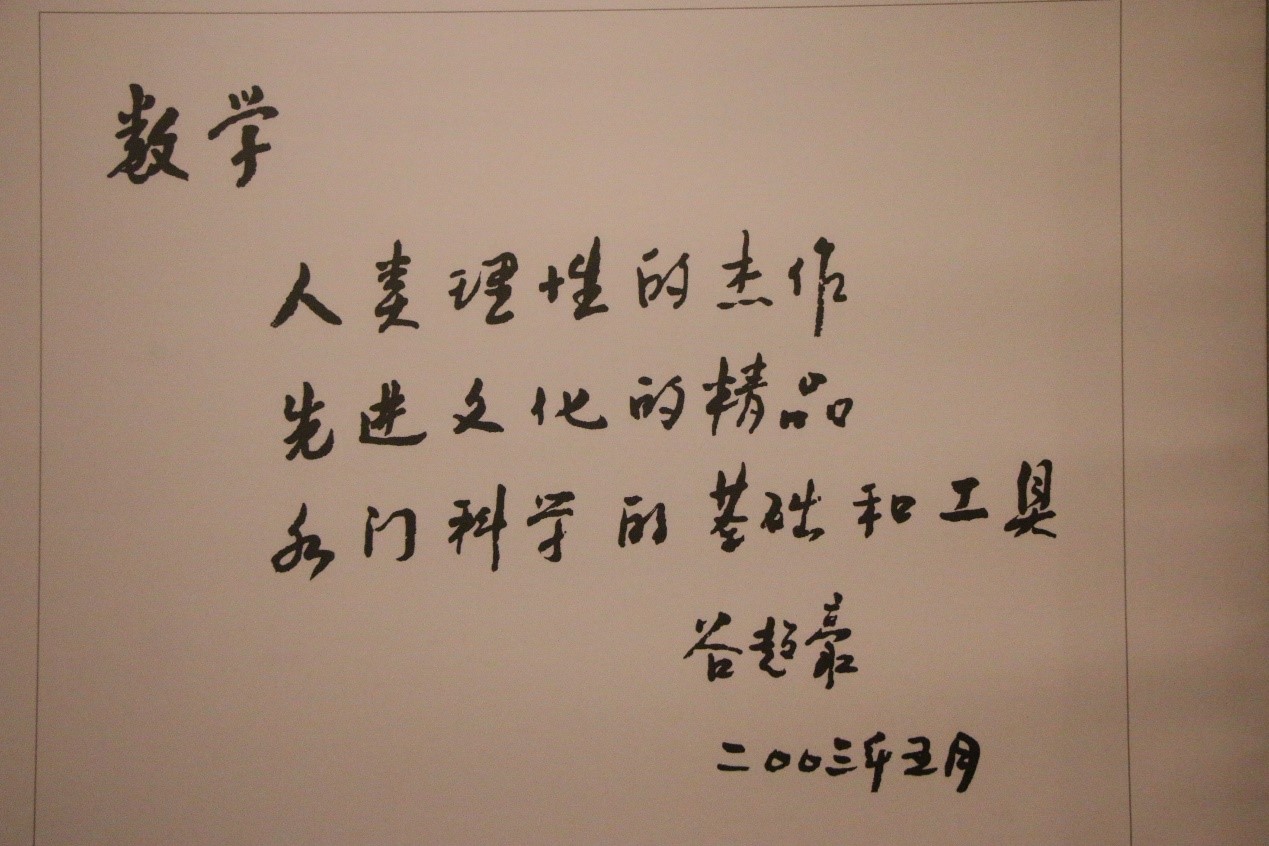 数学
人类理性的杰作
先进文化的精品
各门科学的基础和工具
谷超豪
二〇〇三年五月